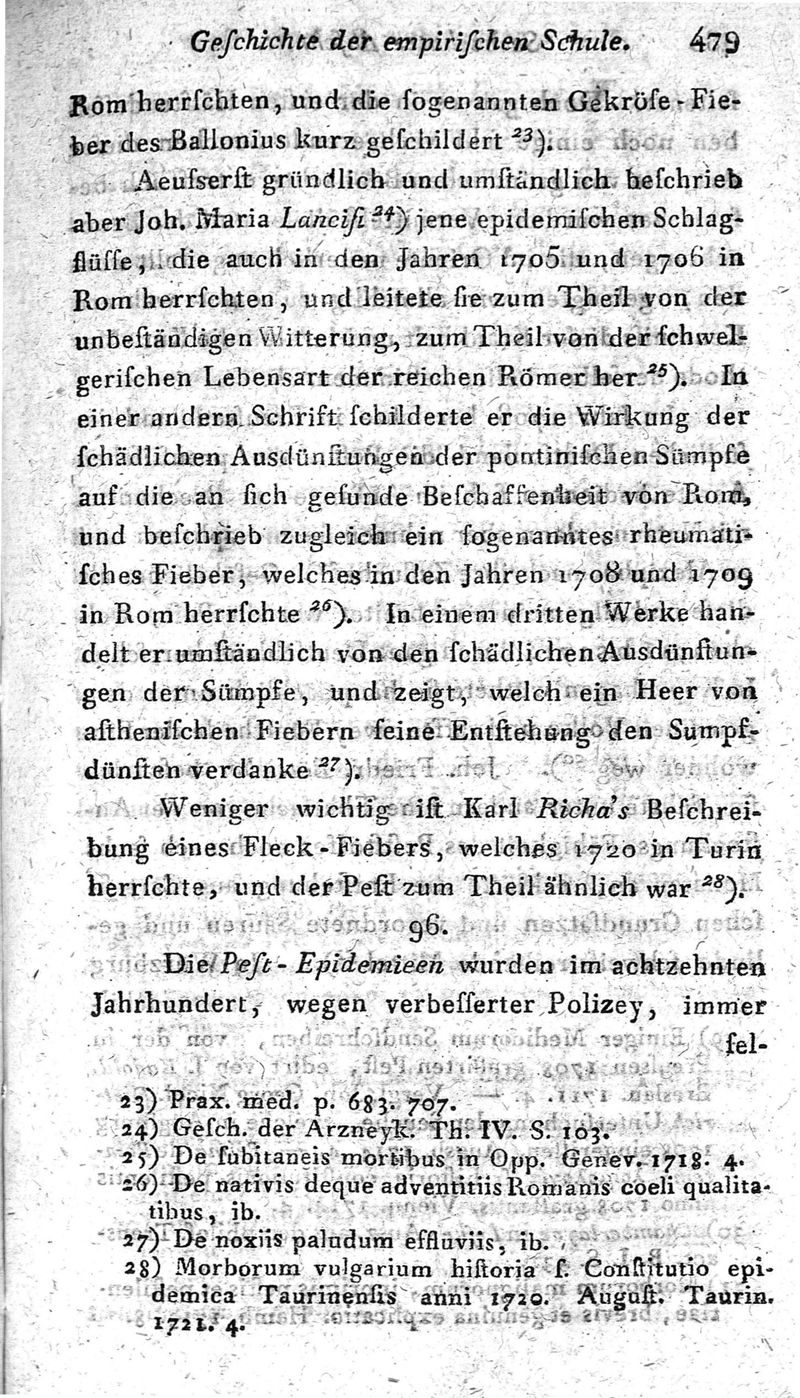 Geſchichte der empiriſchen Schule. 479
Rom herrſchten, und die ſogenannten Gekröſe-Fie-
ber des Ballonius kurz geſchildert 23).
Aeuſserſt gründlich und umſtändlich beſchrieb
aber Joh. Maria Lanciſi 24) jene epidemiſchen Schlag-
flüſſe, die auch in den Jahren 1705 und 1706 in
Rom herrſchten, und leitete ſie zum Theil von der
unbeſtändigen Witterung, zum Theil von der ſchwel-
geriſchen Lebensart der reichen Römer her 25). In
einer andern Schrift ſchilderte er die Wirkung der
ſchädlichen Ausdünſtungen der pontiniſchen Sümpfe
auf die an ſich geſunde Beſchaffenheit von Rom,
und beſchrieb zugleich ein ſogenanntes rheumati-
ſches Fieber, welches in den Jahren 1708 und 1709
in Rom herrſchte 26). In einem dritten Werke han-
delt er umſtändlich von den ſchädlichen Ausdünſtun-
gen der Sümpfe, und zeigt, welch ein Heer von
aſtheniſchen Fiebern ſeine Entſtehung den Sumpf-
dünſten verdanke 27).
Weniger wichtig iſt Karl Richa's Beſchrei-
bung eines Fleck-Fiebers, welches 1720 in Turin
herrſchte, und der Peſt zum Theil ähnlich war 28).
96.
Die Peſt-Epidemieen wurden im achtzehnten
Jahrhundert, wegen verbeſſerter Polizey, immer
ſel-
23) Prax. med. p. 683. 707.
24) Geſch. der Arzneyk. Th. IV. S. 103.
25) De ſubitaneis mortibus in Opp. Genev. 1718. 4.
26) De nativis deque adventitiis Romanis coeli qualita-
tibus, ib.
27) De noxiis paludum effluviis, ib.
28) Morborum vulgarium hiſtoria ſ. Conſtitutio epi-
demica Taurinenſis anni 1720. Auguſt. Taurin.
1721. 4.